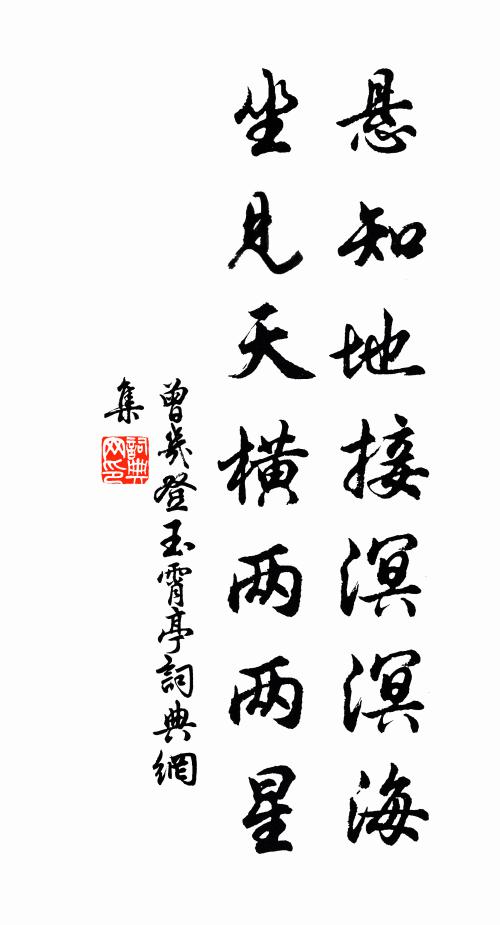 悬知地接溟溟海
坐见天横两两星
曾几登玉霄亭词典網
集
詞典
网印